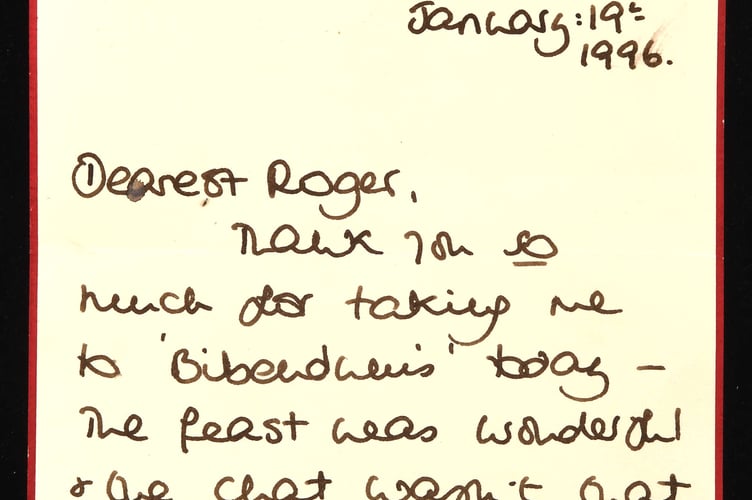 January: 19th
1996.
Dearest Roger,
Thank you so
much for taking me
to 'Bibendum's' today –
The feast was wonderful
& the chat wasn't that